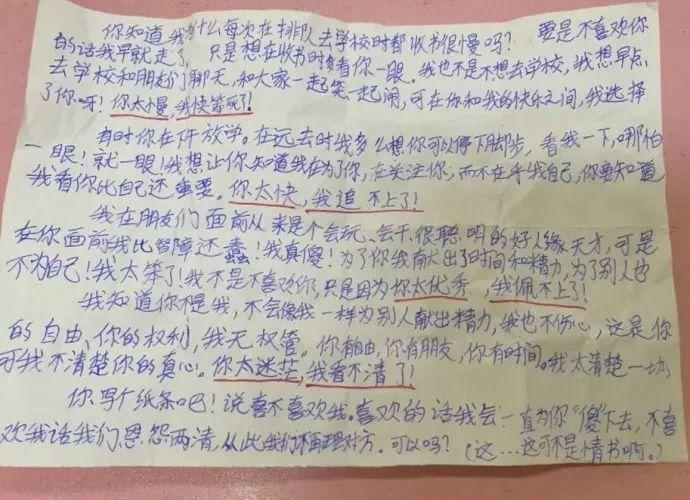 你知道我为什么每次在排队去学校时都收书很慢吗？ 要是不喜欢你
的话我早就走了，只是想在收书时多看你一眼。我也不是不想去学校，我想早点
去学校和朋友们聊天，和大家一起笑一起闹，可在你和我的快乐之间，我选择
了你呀！你太慢，我快等死了！
有时你在放学。在远去时我多么想你可以停下脚步，看我一下，哪怕
一眼！就一眼！我想让你知道我在为了你，在关注你，而不在乎我自己，你要知道
我看你比自己还重要。你太快，我追不上了！
我在朋友们面前从来是个会玩、会干、很聪明的好人缘天才，可是
在你面前我比智障还蠢！我真傻！为了你我献出了时间和精力，为了别人也
不为自己！我太笨了！我不是不喜欢你，只是因为你太优秀，我佩不上了！
我知道你不是我，不会像我一样为别人献出精力，我也不伤心，这是你
的自由、你的权利，我无权管。你有自由，你有朋友，你有时间。我太清楚一切，
可我不清楚你的真心。你太迷茫，我看不清了！
你写个纸条吧！说喜不喜欢我。喜欢的话我会一直为你“傻”下去，不喜
欢我话我们恩怨两清，从此我们不再理对方。可以吗？（这…这可不是情书啊。）